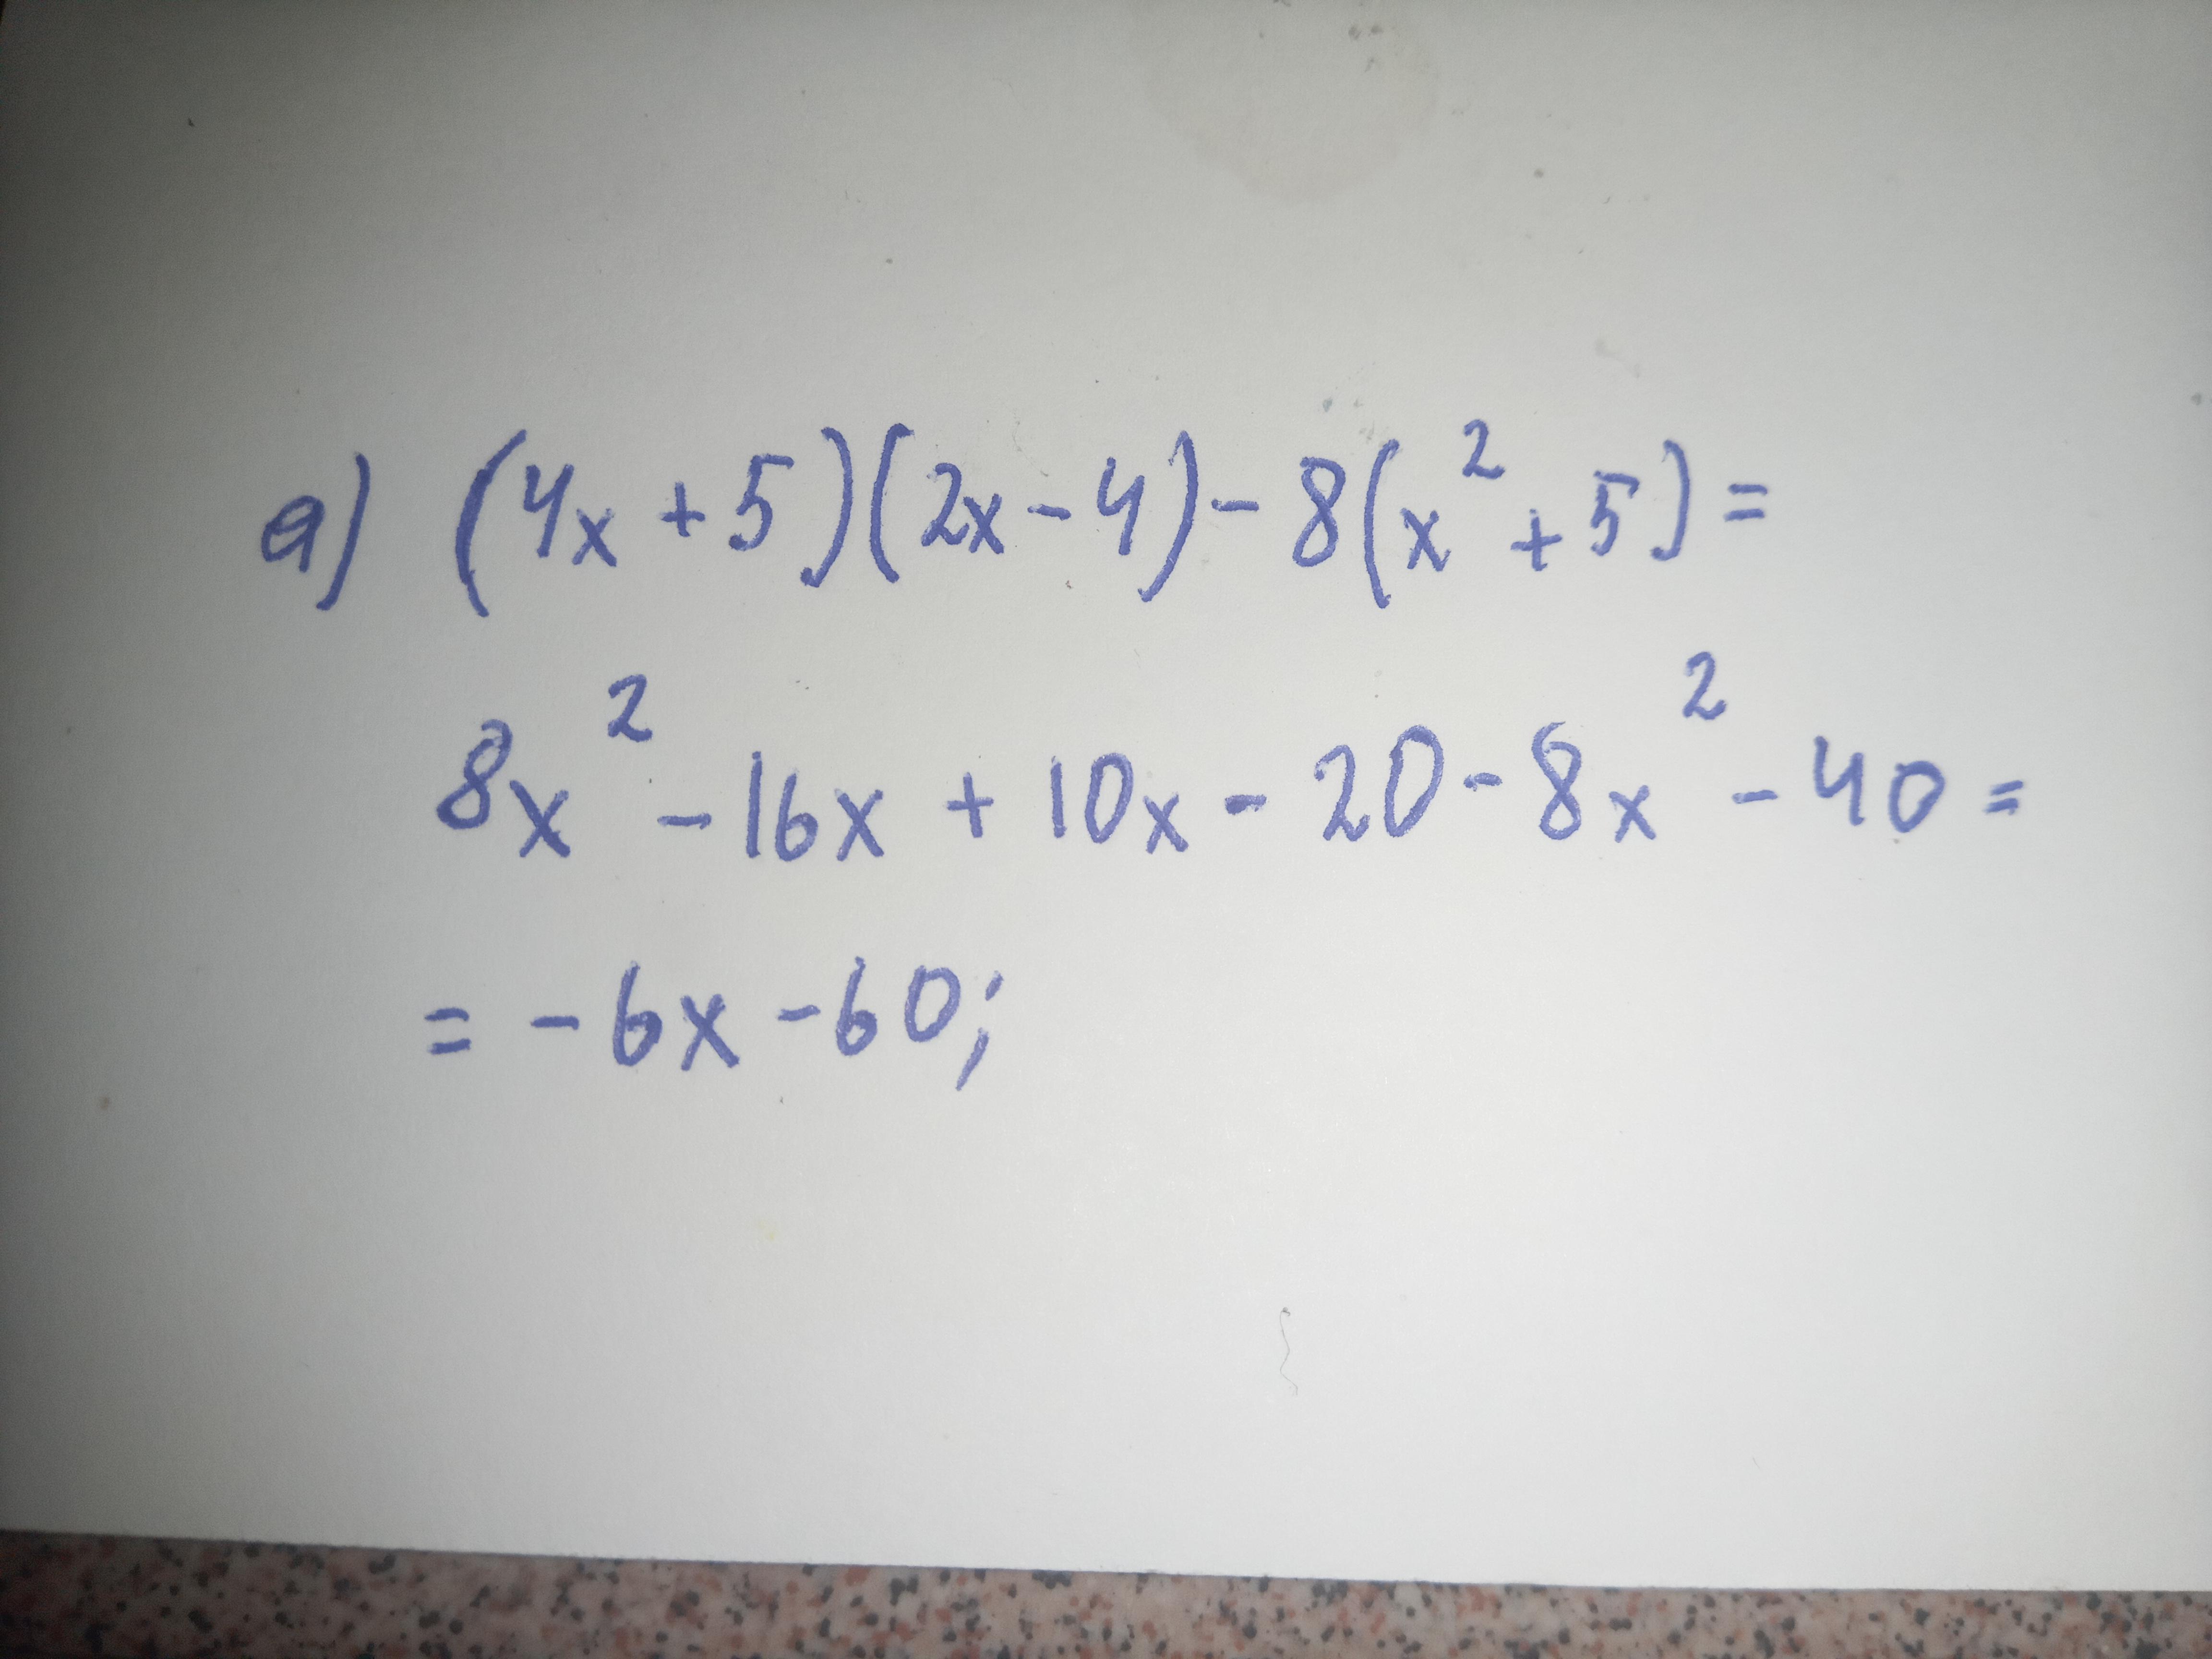 а) (4x + 5)(2x - 4) - 8(x² + 5) =
8x² - 16x + 10x - 20 - 8x² - 40 =
= - 6x - 60;